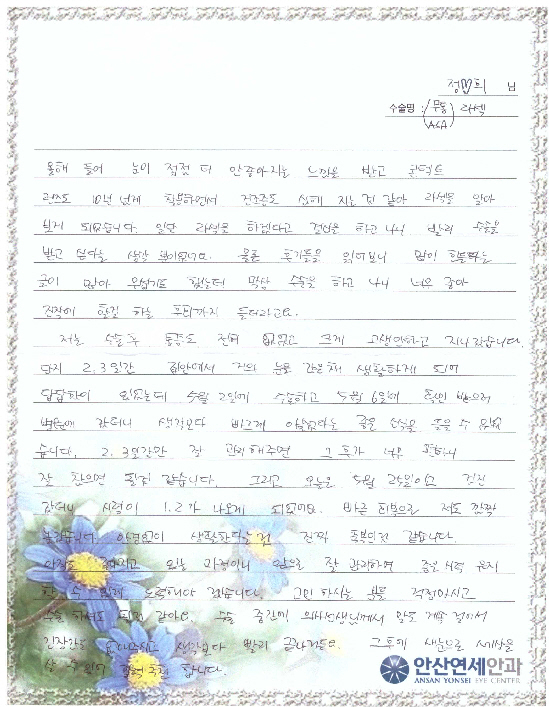 정 희 님
수술명: (무통 ASA) 라섹
올해 들어 눈이 점점 더 안좋아지는 느낌을 받고 콘텍트
렌즈도 10년 넘게 착용하면서 건조증도 심해 지는 것 같아 라섹을 알아
보게 되었습니다. 일단 라섹을 하겠다고 결심을 하고 나니 빨리 수술을
받고 싶다는 생각 뿐이었어요. 물론 후기들을 읽어보니 많이 아프다는
글이 많아 무섭기도 했는데 막상 수술을 하고 나니 너무 좋아
진작에 할걸 하는 후회까지 들더라고요.
저는 수술 후 통증도 전혀 없었고 크게 고생안하고 지나갔습니다.
단지 2, 3일간 집안에서 거의 눈을 감은채 생활하게 되어
답답함이 있었는데 5월 2일에 수술하고 5월 6일에 확인 받으러
병원에 갔더니 생각보다 빠르게 아물었다는 좋은 소식을 들을 수 있었
습니다. 2, 3일간만 잘 관리해주면 그 후가 너무 편하니
잘 참으면 될것 같습니다. 그리고 오늘은 5월 25일이고 검진
갔더니 시력이 1.2가 나오게 되었어요. 빠른 회복으로 저도 깜짝
놀랐습니다. 안경없이 생활한다는건 진짜 축복인것 같습니다.
아직도 회복 과정이니 앞으로 잘 관리하면 좋은 시력 유지
할 수 있게 노력해야 겠습니다. 고민 하시는 분들 걱정마시고
수술 하셔도 되실 것 같아요. 수술 중간에 의사선생님께서 말도 계속 걸어줘서
긴장감을 없애주시고 생각보다 빨리 끝나거든요. 그후에 새눈으로 세상을
볼 수 있어 합니다.
안산연세안과
ANSAN YONSEI EYE CENTER